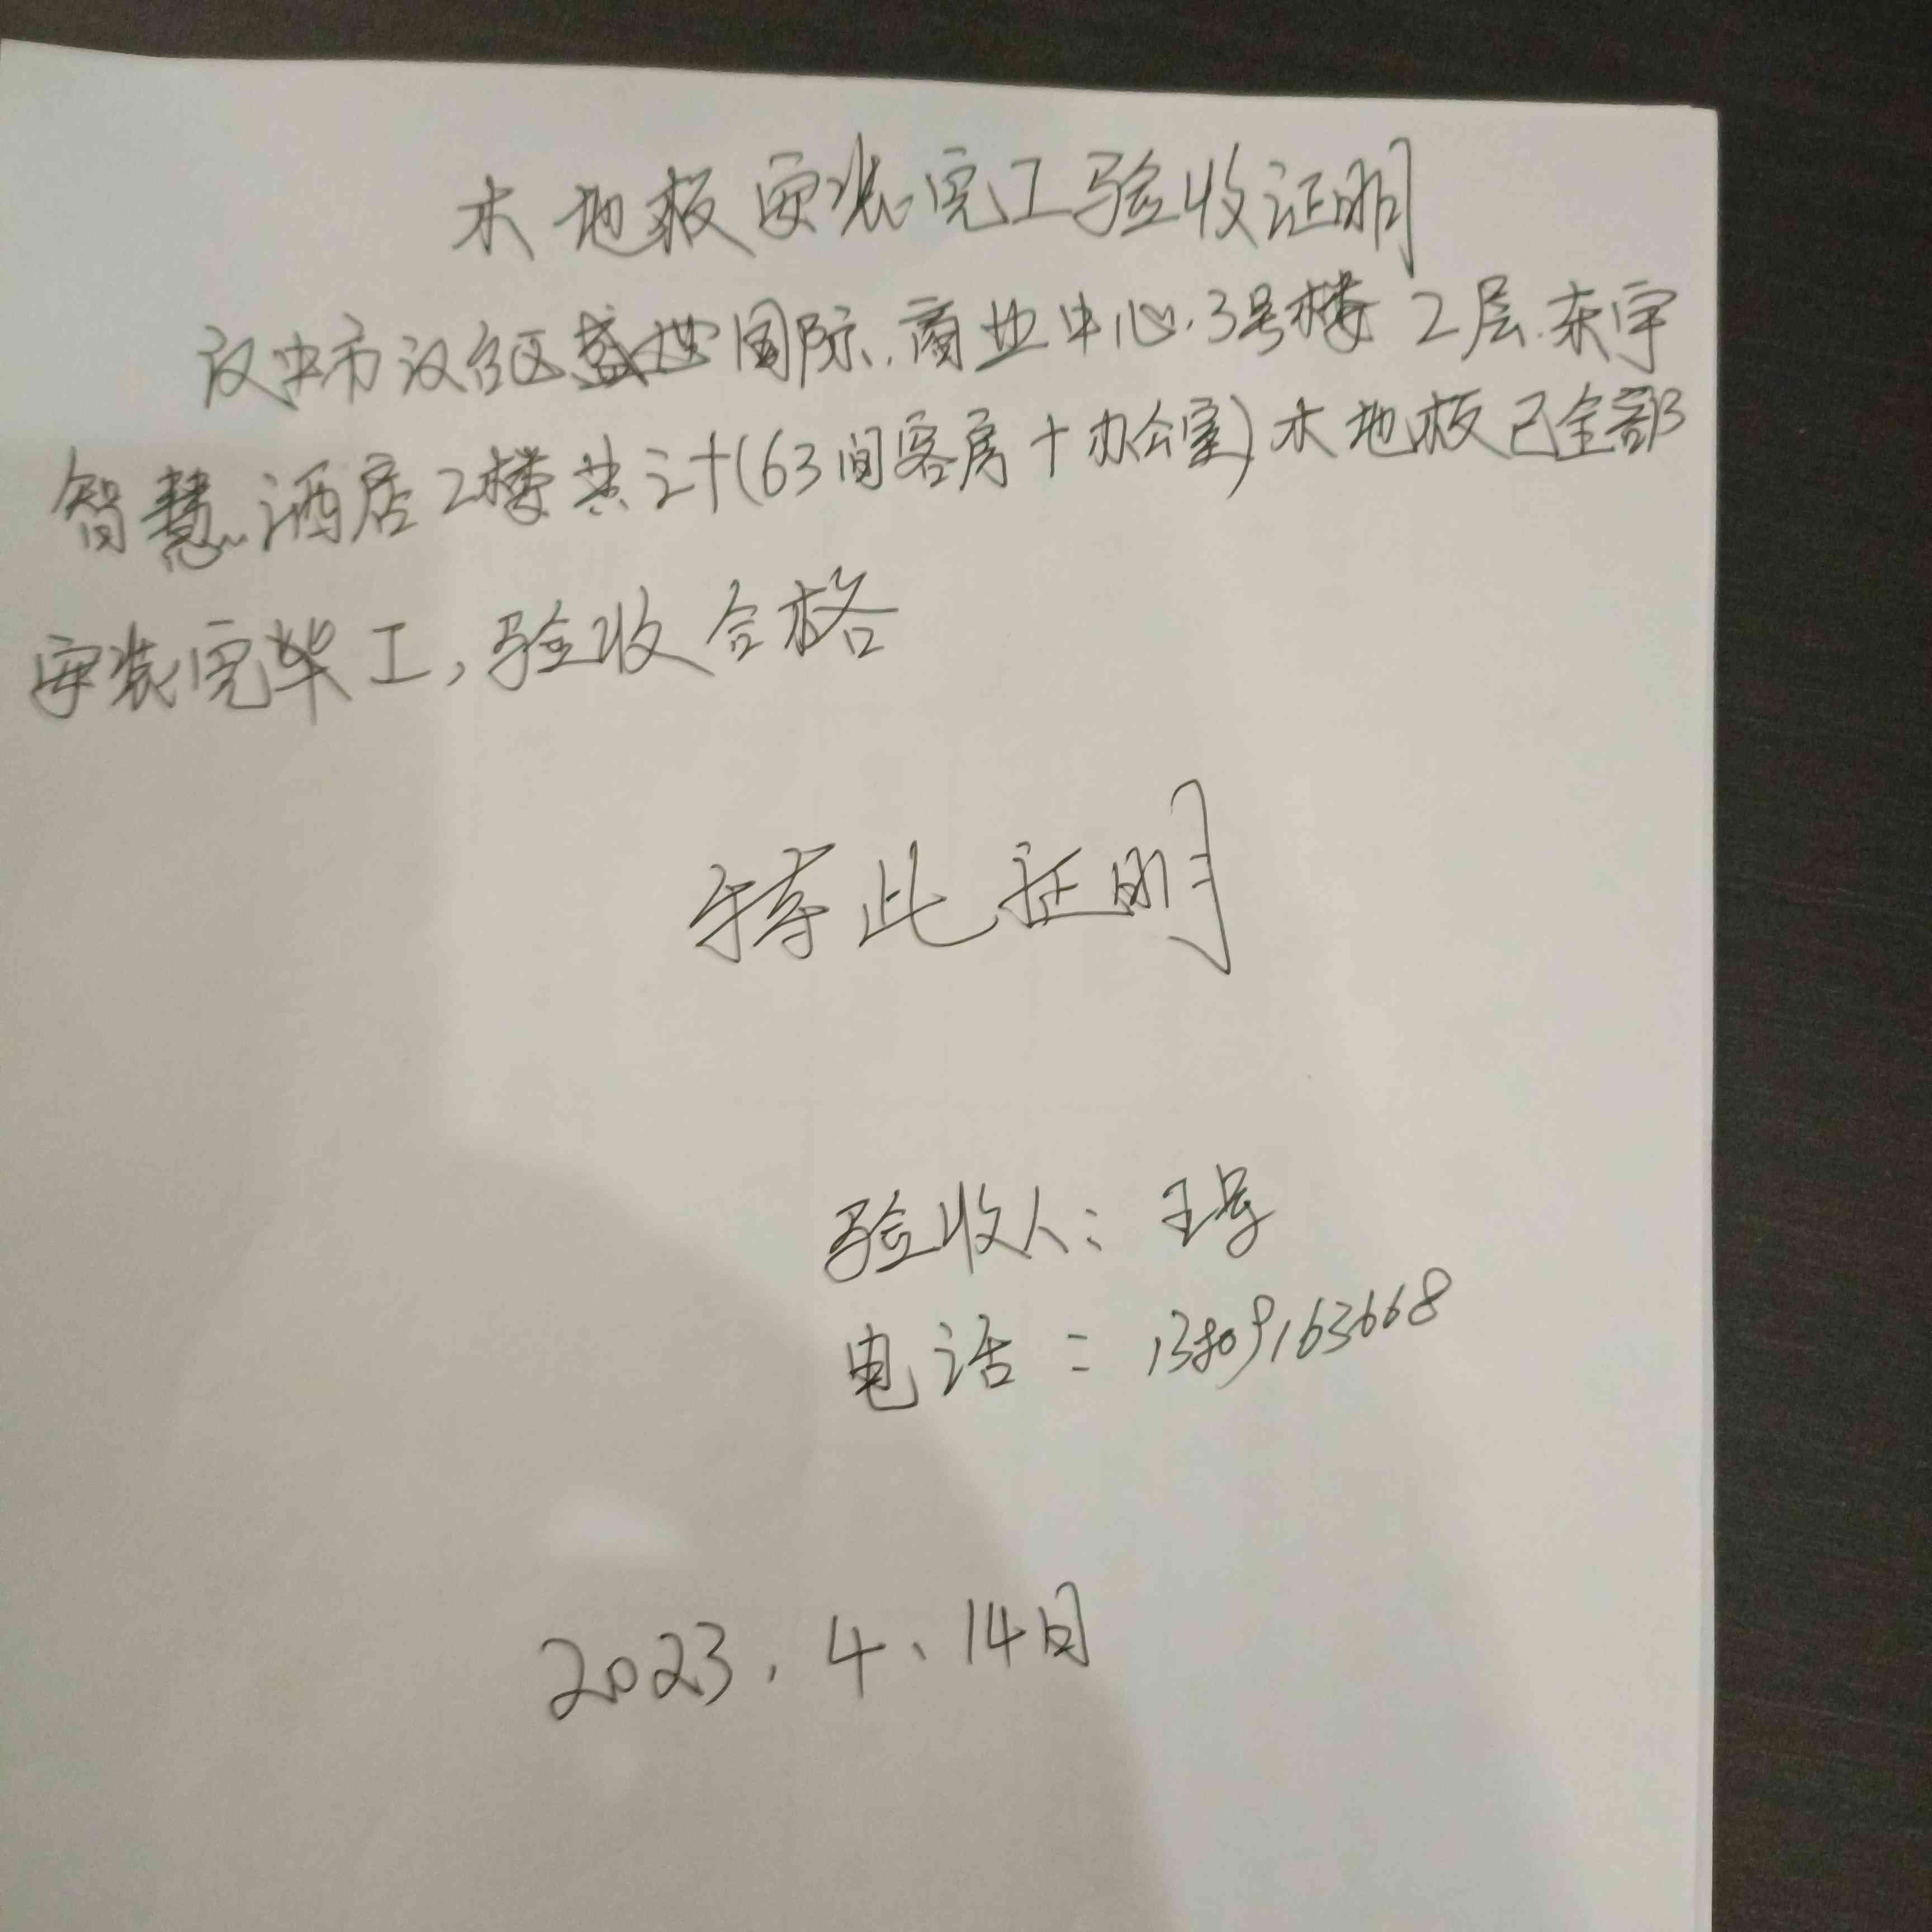 木地板安装完工验收证明
汉中市汉台区盛世国际.商业中心.3号楼 2层.东宇
智慧.酒店2楼共计(63间客房+办公室)木地板已全部
安装完毕工,验收合格
特此证明
验收人: 王导
电话: 13809163668
2023.4、14日